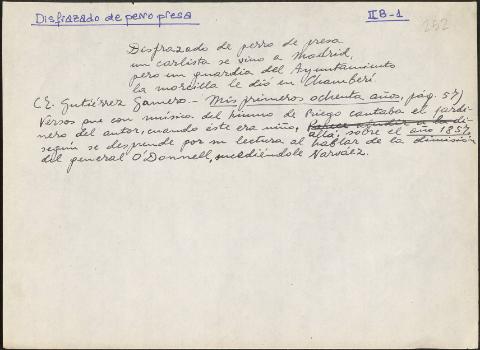 Disfrazado de perro presa
II B-1
252
Disfrazado de perro de presa
un carlista se vino a Madrid,
pero un guardia del Ayuntamiento
la morcilla le dió en Chamberí
(E. Gutiérrez Gamero - Mis primeros ochenta años, pág. 57)
Versos que con música del himno de Riego cantaba el jardi-
nero del autor, cuando éste era niño, Parece aludir a la di-
allá, sobre el año 1857,
según se desprende por su lectura al hablar de la dimisión
del general O'Donnell, sucediéndole Narváez.